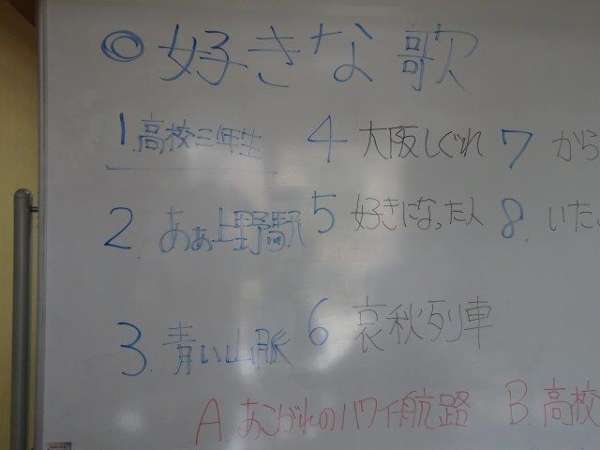 ◎好きな歌
1.高校三年生 4 大阪しぐれ 7 から
2.あぁ上野駅 5 好きになった人 8.いた
3.青い山脈 6 哀秋列車
A あこがれのハワイ航路 B 高校